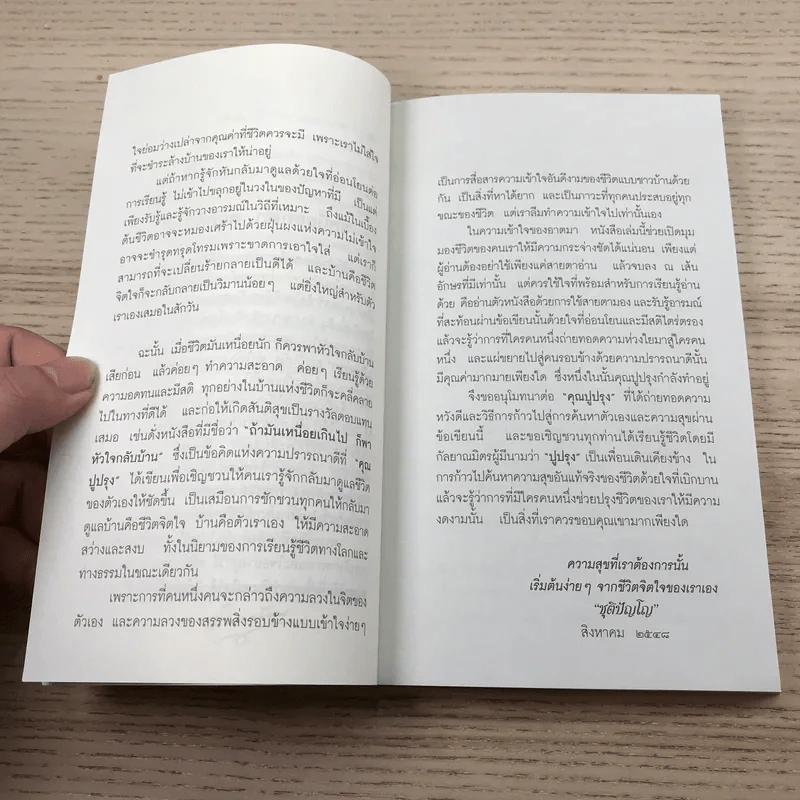 ใจย่อมว่างเปล่าจากคุณค่าที่ชีวิตควรจะมี เพราะเราไม่ใส่ใจ
ที่จะชำระล้างบ้านของเราให้น่าอยู่
แต่ถ้าหากรู้จักหันกลับมาดูแลด้วยใจที่อ่อนโยนต่อ
การเรียนรู้ ไม่เข้าไปขลุกอยู่ในวงในของปัญหาที่มี เป็นแต่
เพียงรับรู้และรู้จักวางอารมณ์ในวิถีที่เหมาะ ถึงแม้ในเบื้อง
ต้นชีวิตอาจจะหมองเศร้าไปด้วยฝุ่นผงแห่งความไม่เข้าใจ
อาจจะชำรุดทรุดโทรมเพราะขาดการเอาใจใส่ แต่เราก็
สามารถที่จะเปลี่ยนร้ายกลายเป็นดีได้ และบ้านคือชีวิต
จิตใจก็จะกลับกลายเป็นวิมานน้อยๆ แต่ยิ่งใหญ่สำหรับตัว
เราเองเสมอในสักวัน
ฉะนั้น เมื่อชีวิตมันเหนื่อยนัก ก็ควรพาหัวใจกลับบ้าน
เสียก่อน แล้วค่อยๆ ทำความสะอาด ค่อยๆ เรียนรู้ด้วย
ความอดทนและมีสติ ทุกอย่างในบ้านแห่งชีวิตก็จะคลี่คลาย
ไปในทางที่ดีได้ และก่อให้เกิดสันติสุขเป็นรางวัลตอบแทน
เสมอ เช่นดั่งหนังสือที่มีชื่อว่า “ถ้ามันเหนื่อยเกินไป ก็พา
หัวใจกลับบ้าน” ซึ่งเป็นข้อคิดแห่งความปรารถนาดีที่ “คุณ
ปูปรุง” ได้เขียนเพื่อเชิญชวนให้คนเรารู้จักกลับมาดูแลชีวิต
ของตัวเองให้ชัดขึ้น เป็นเสมือนการชักชวนทุกคนให้กลับมา
ดูแลบ้านคือชีวิตจิตใจ บ้านคือตัวเราเอง ให้มีความสะอาด
สว่างและสงบ ทั้งในนิยามของการเรียนรู้ชีวิตทางโลกและ
ทางธรรมในขณะเดียวกัน
เพราะการที่คนหนึ่งคนจะกล่าวถึงความลวงในจิตของ
ตัวเอง และความลวงของสรรพสิ่งรอบข้างแบบเข้าใจง่ายๆ
เป็นการสื่อสารความเข้าใจอันดีงามของชีวิตแบบชาวบ้านด้วย
กัน เป็นสิ่งที่หาได้ยาก และเป็นภาวะที่ทุกคนประสบอยู่ทุก
ขณะของชีวิต แต่เราลืมทำความเข้าใจไปเท่านั้นเอง
ในความเข้าใจของอาตมา หนังสือเล่มนี้ช่วยเปิดมุม
มองชีวิตของคนเราให้มีความกระจ่างชัดได้แน่นอน เพียงแต่
ผู้อ่านต้องอย่าใช้เพียงแค่สายตาอ่าน แล้วจบลง ณ เส้น
อักษรที่มีเท่านั้น แต่ควรใช้ใจที่พร้อมสำหรับการเรียนรู้อ่าน
ด้วย คืออ่านตัวหนังสือด้วยการใช้สายตามอง และรับรู้อารมณ์
ที่สะท้อนผ่านข้อเขียนนั้นด้วยใจที่อ่อนโยนและมีสติไตร่ตรอง
แล้วจะรู้ว่าการที่ใครคนหนึ่งถ่ายทอดความห่วงใยมาสู่ใครคน
หนึ่ง และแผ่ขยายไปสู่คนรอบข้างด้วยความปรารถนาดีนั้น
มีคุณค่ามากมายเพียงใด ซึ่งหนึ่งในนั้นคุณปูปรุงกำลังทำอยู่
จึงขออนุโมทนาต่อ “คุณปูปรุง” ที่ได้ถ่ายทอดความ
หวังดีและวิธีการก้าวไปสู่การค้นหาตัวเองและความสุขผ่าน
ข้อเขียนนี้ และขอเชิญชวนทุกท่านได้เรียนรู้ชีวิตโดยมี
กัลยาณมิตรผู้มีนามว่า “ปูปรุง” เป็นเพื่อนเดินเคียงข้าง ใน
การก้าวไปค้นหาความสุขอันแท้จริงของชีวิตด้วยใจที่เบิกบาน
แล้วจะรู้ว่าการที่มีใครคนหนึ่งช่วยปรุงชีวิตของเราให้มีความ
งดงามนั้น เป็นสิ่งที่เราควรขอบคุณเขามากเพียงใด
ความสุขที่เราต้องการนั้น
เริ่มต้นง่ายๆ จากชีวิตจิตใจของเราเอง
“ชุติปัญโญ”
สิงหาคม ๒๕๔๘